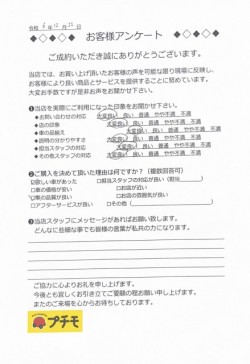 令和6年12月
◆◇◆◇ お客様アンケート ◆◇◆◇
ご成約いただき誠にありがとうございます。
当店では、お買い上げ頂いたお客様の声を可能な限り現場に反映し、
お客様により良い商品とサービスを提供することに努めています。
大変お手数ですが是非お声をお聞かせ下さい。
❶当店を実際にご利用になった印象をお聞かせ下さい。
◆お問い合わせの対応 大変良い 良い 普通 やや不満 不満
◆店の印象 大変良い 良い 普通 やや不満 不満
◆車の品揃え 大変良い 良い 普通 やや不満 不満
◆説明の分かりやすさ 大変良い 良い 普通 やや不満 不満
◆担当スタッフの対応 大変良い 良い 普通 やや不満 不満
◆その他スタッフの対応 大変良い 良い 普通 やや不満 不満
❷ご購入を決めて頂いた理由は何ですか?(複数回答可)
欲しい車があった □担当スタッフの対応が良い(担当
□車の価格が安い □お店が近い
車の品質が良い □お店の雰囲気が良い
□アフターサービスが良い □その他(
❸当店スタッフにメッセージがあればお願い致します。
どんなに些細な事でも皆様の言葉が私共の力になります。
ご協力に心よりお礼を申し上げます。
今後とも宜しくお引き立てご愛顧の程お願い申し上げます。
またのご来場を心からお待ちしております。
プチモ